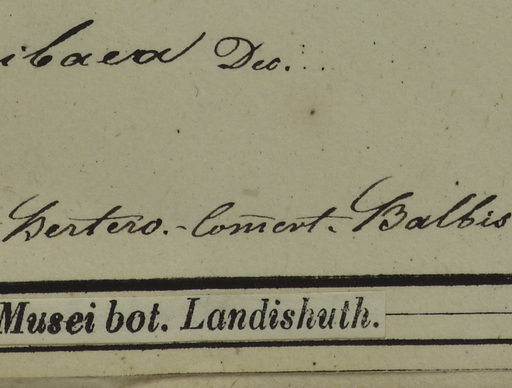 ibaea Dec.
Bertero.- Com̄ert. Balbis
Musei bot. Landishuth.